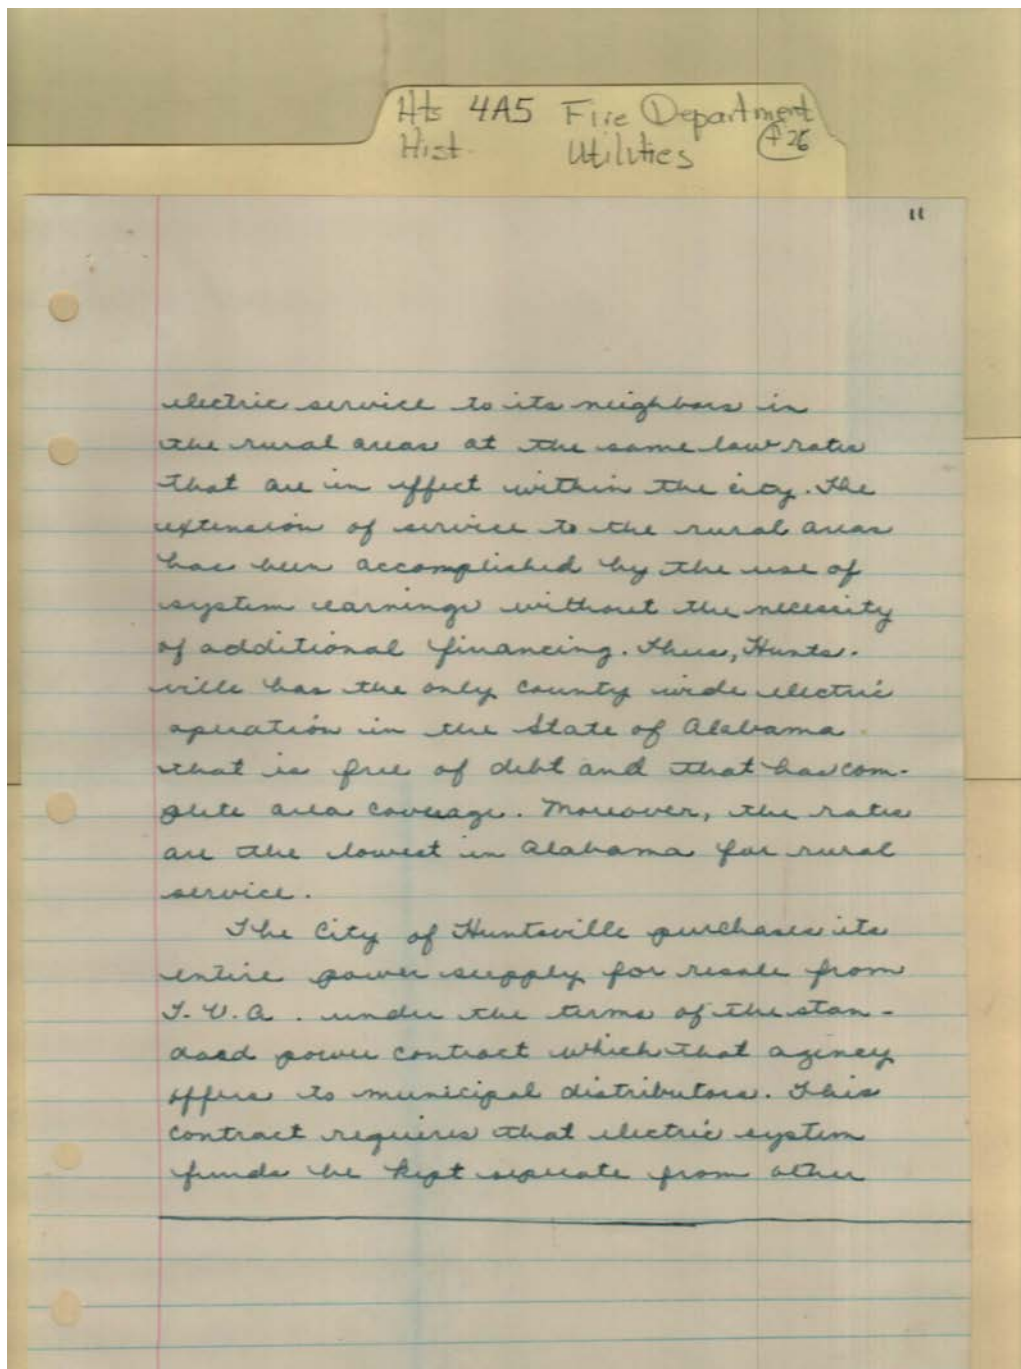 Hts 4A5 Fire Department
Hist. Utilities #26
11
electric service to its neighbors in
the rural areas at the same low rates
that are in effect within the city. The
extension of service to the rural areas
has been accomplished by the use of
system earnings without the necessity
of additional financing. Thus, Hunts-
ville has the only county wide electric
operation in the State of Alabama
that is free of debt and that has com-
plete area coverage. Moreover, the rates
are the lowest in Alabama for rural
service.
The City of Huntsville purchases its
entire power supply for resale from
T.V.A. under the terms of the stan-
dard power contract which that agency
offers to municipal distributors. This
contract requires that electric system
funds be kept separate from other